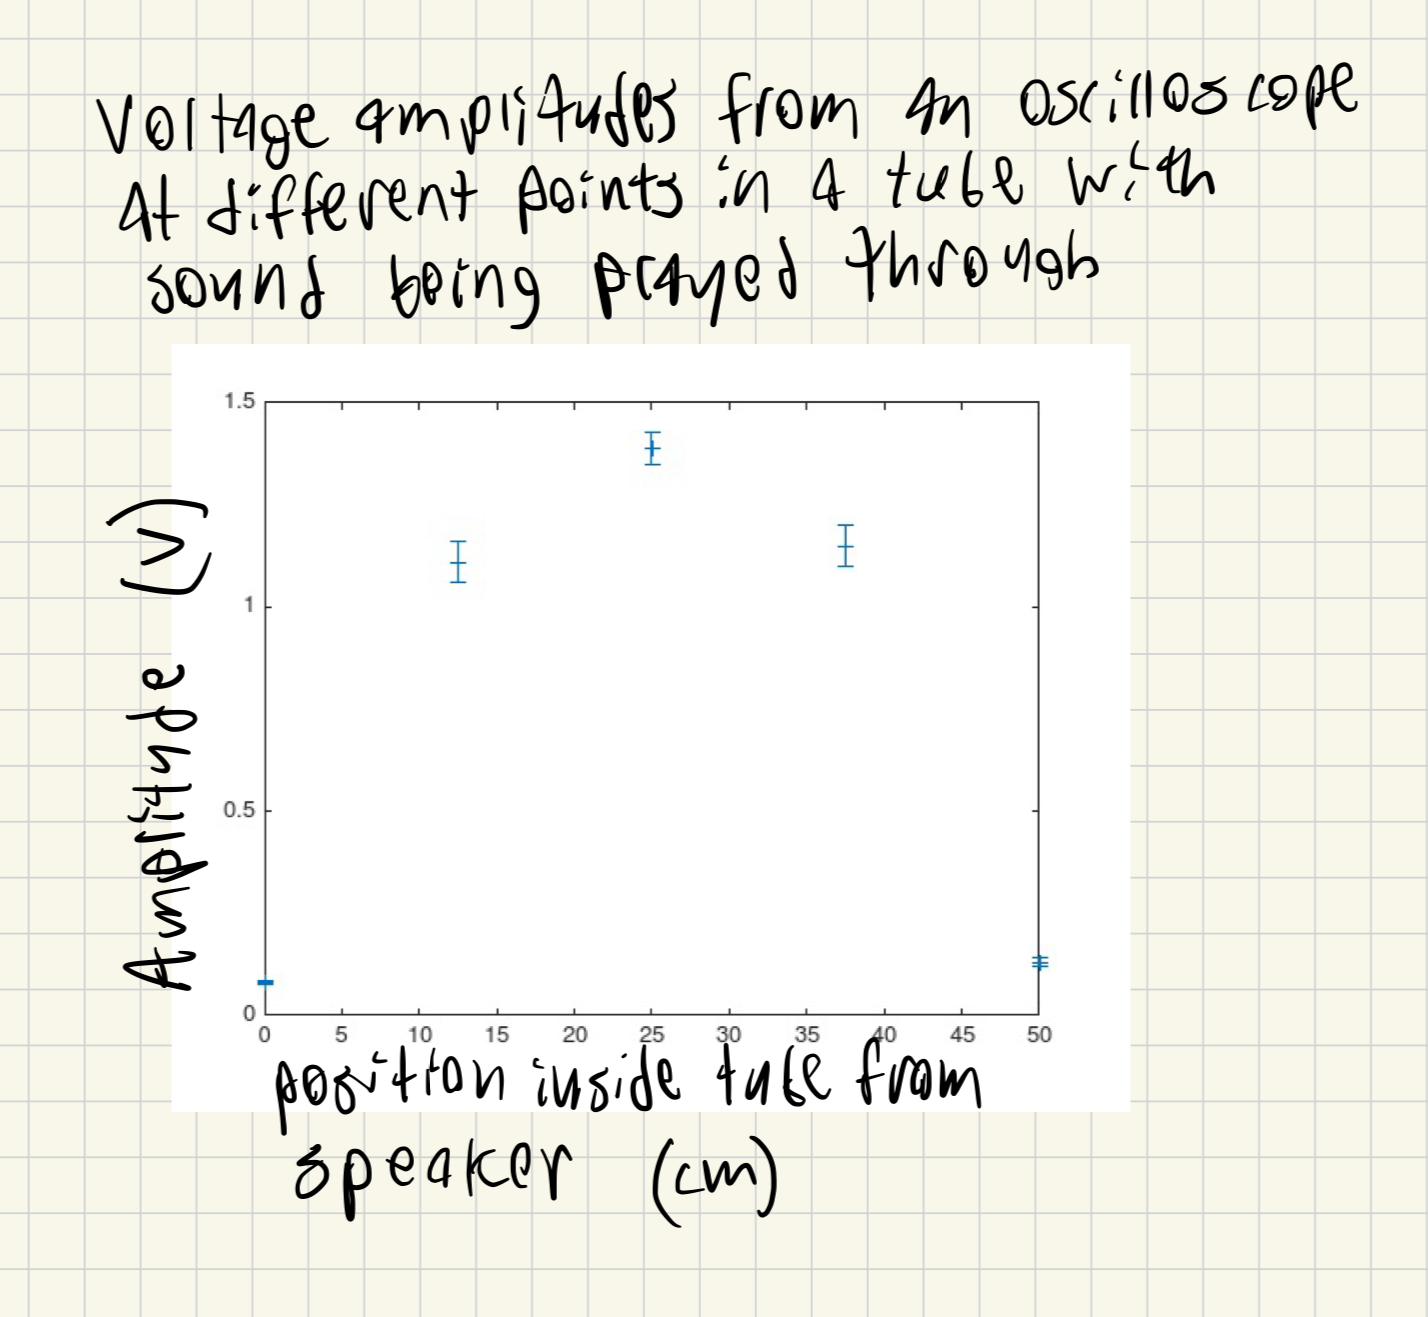 Voltage amplitudes from an oscilloscope
At different points in a tube with
sound being played through
1.5
1
0.5
0
Amplitude (V)
0 5 10 15 20 25 30 35 40 45 50
position inside tube from
speaker (cm)